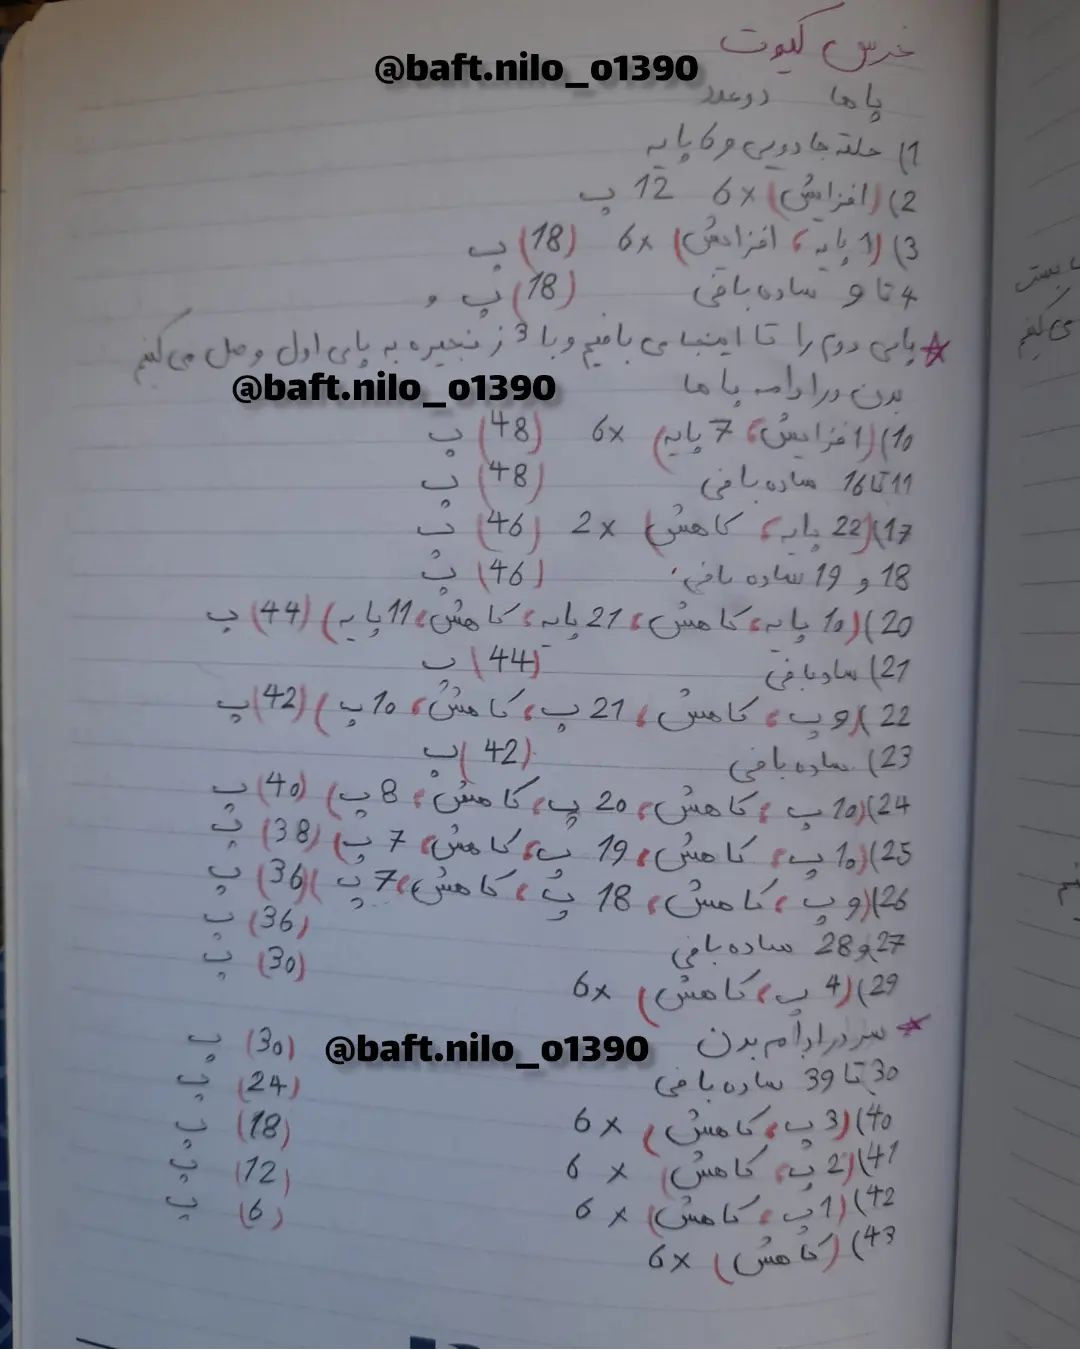 خرس کیوت
@baft.nilo_o1390
پاها دو عدد
1) حلقه جادویی و 6 پایه
2) (افزایش) 6x 12 پ
3) (1 پایه، افزایش) 6x (18) پ
4 تا 9 ساده بافی (18) پ و
* پای دوم را تا اینجا می بافیم و با 3 زنجیره به پای اول وصل می کنیم
@baft.nilo_o1390
بدن در ادامه پا ها
10) (افزایش، 7 پایه) 6x (48) پ
11 تا 16 ساده بافی (48) پ
17) (22 پایه، کاهش) 2x (46) پ
18 و 19 ساده بافی (46) پ
20) (10 پایه، کاهش، 21 پایه، کاهش، 11 پایه) (44) پ
21) ساده بافی (44) پ
22) (9 پ، کاهش، 21 پ، کاهش، 10 پ) (42) پ
23) ساده بافی (42) پ
24) (10 پ، کاهش، 20 پ، کاهش، 8 پ) (40) پ
25) (10 پ، کاهش، 19 پ، کاهش، 7 پ) (38) پ
26) (9 پ، کاهش، 18 پ، کاهش، 7 پ) (36) پ
27 و 28 ساده بافی (36) پ
29) (4 پ، کاهش) 6x (30) پ
* سر در ادام بدن
@baft.nilo_o1390
30 تا 39 ساده بافی (30) پ
40) (3 پ، کاهش) 6x (24) پ
41) (2 پ، کاهش) 6x (18) پ
42) (1 پ، کاهش) 6x (12) پ
43) (کاهش) 6x (6) پ